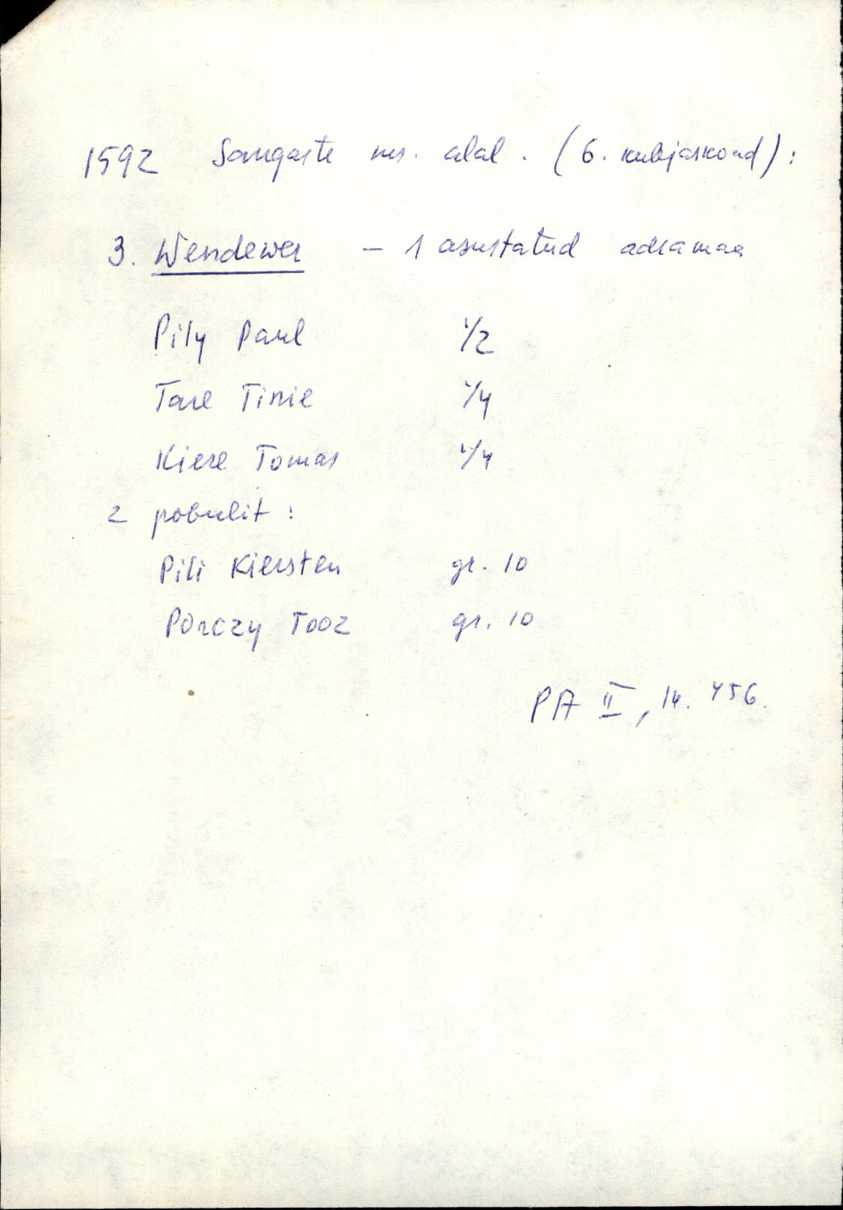 1592 Sangaste ms. alal. (6. kubjaskond):
3. Wendewer - 1 asustatud adramaa
Pily Paul 1/2
Tare Tinie 1/4
Kiere Tomas 1/4
2 pobulit:
Pili Kiersten gr. 10
Porczy Tooz gr. 10
PA II, 456.